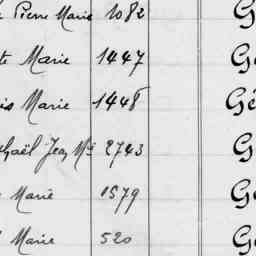 Pierre Marie 1082 G
te Marie 1447 G
is Marie 1448 Gé
haël Jean Mie 2743 G
Marie 1579 G
Marie 520 G